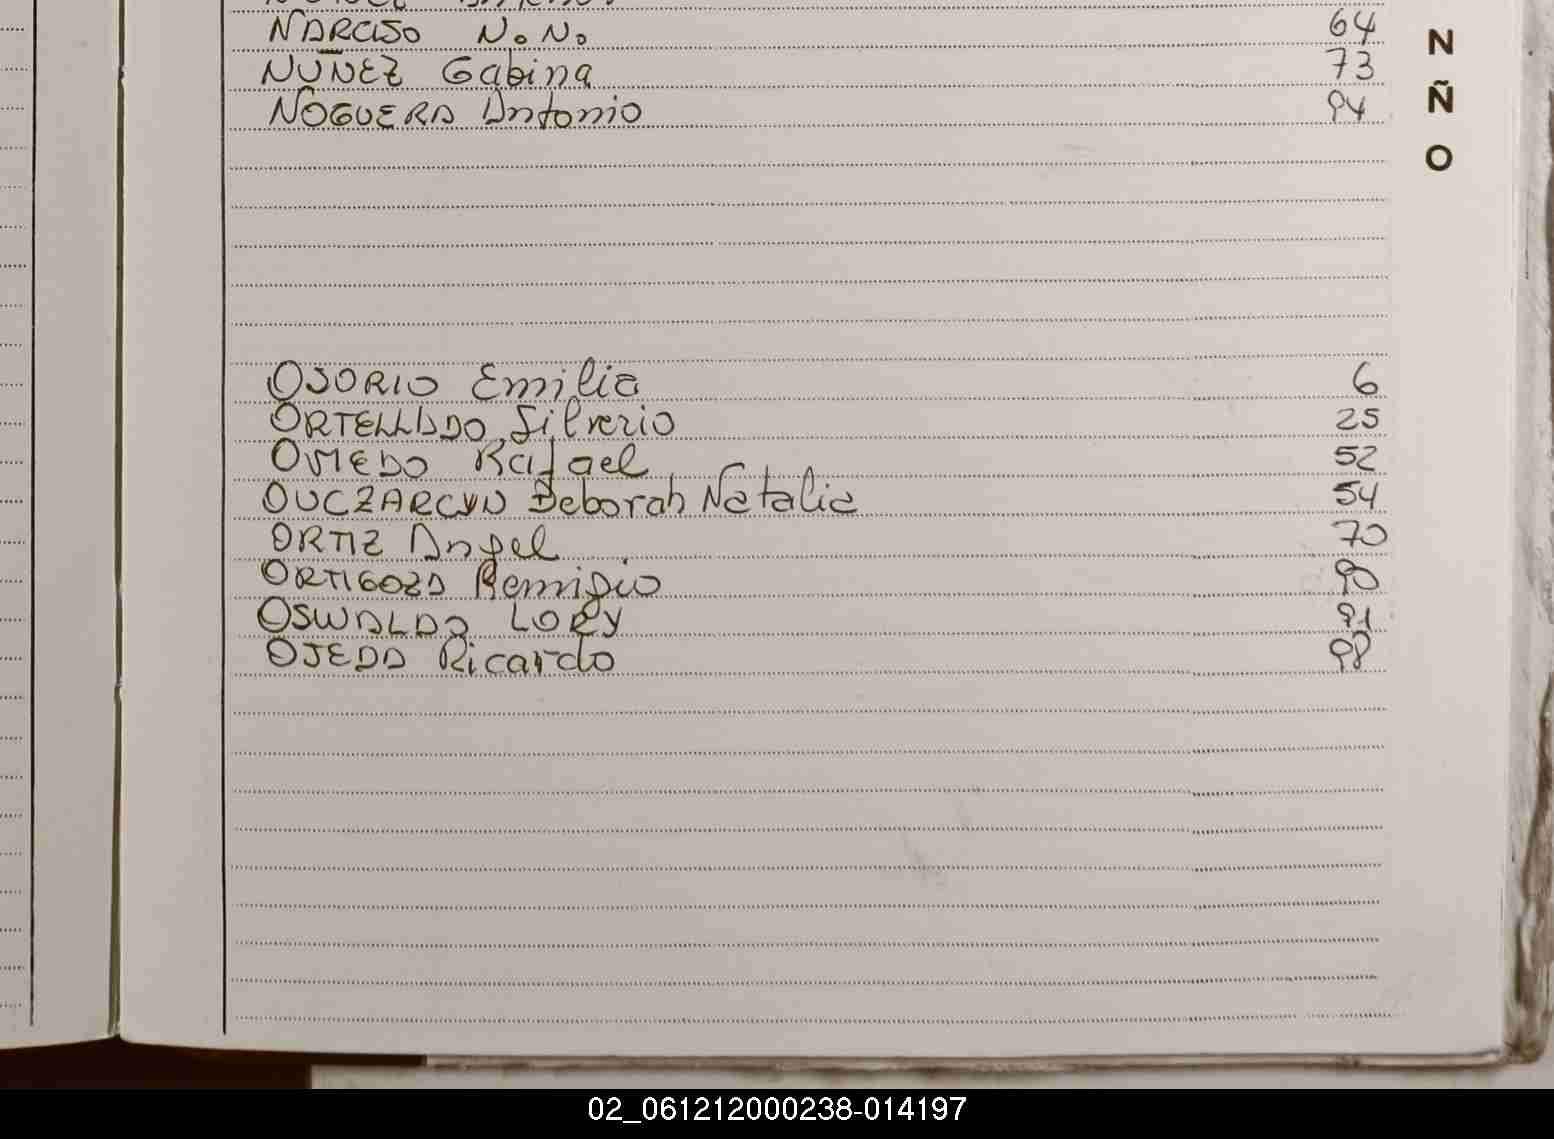 NARCISO N. N. 64
NUÑEZ Gabina 73
NOGUERA Antonio 94
N
Ñ
O
OSORIO Emilia 6
ORTELLADO Silverio 25
OVIEDO Rafael 52
OUCZARCYN Deborah Natalia 54
ORTIZ Angel 70
ORTIGOZA Remigio 90
OSWALDO LORY 91
OJEDA Ricardo 98
02_061212000238-014197